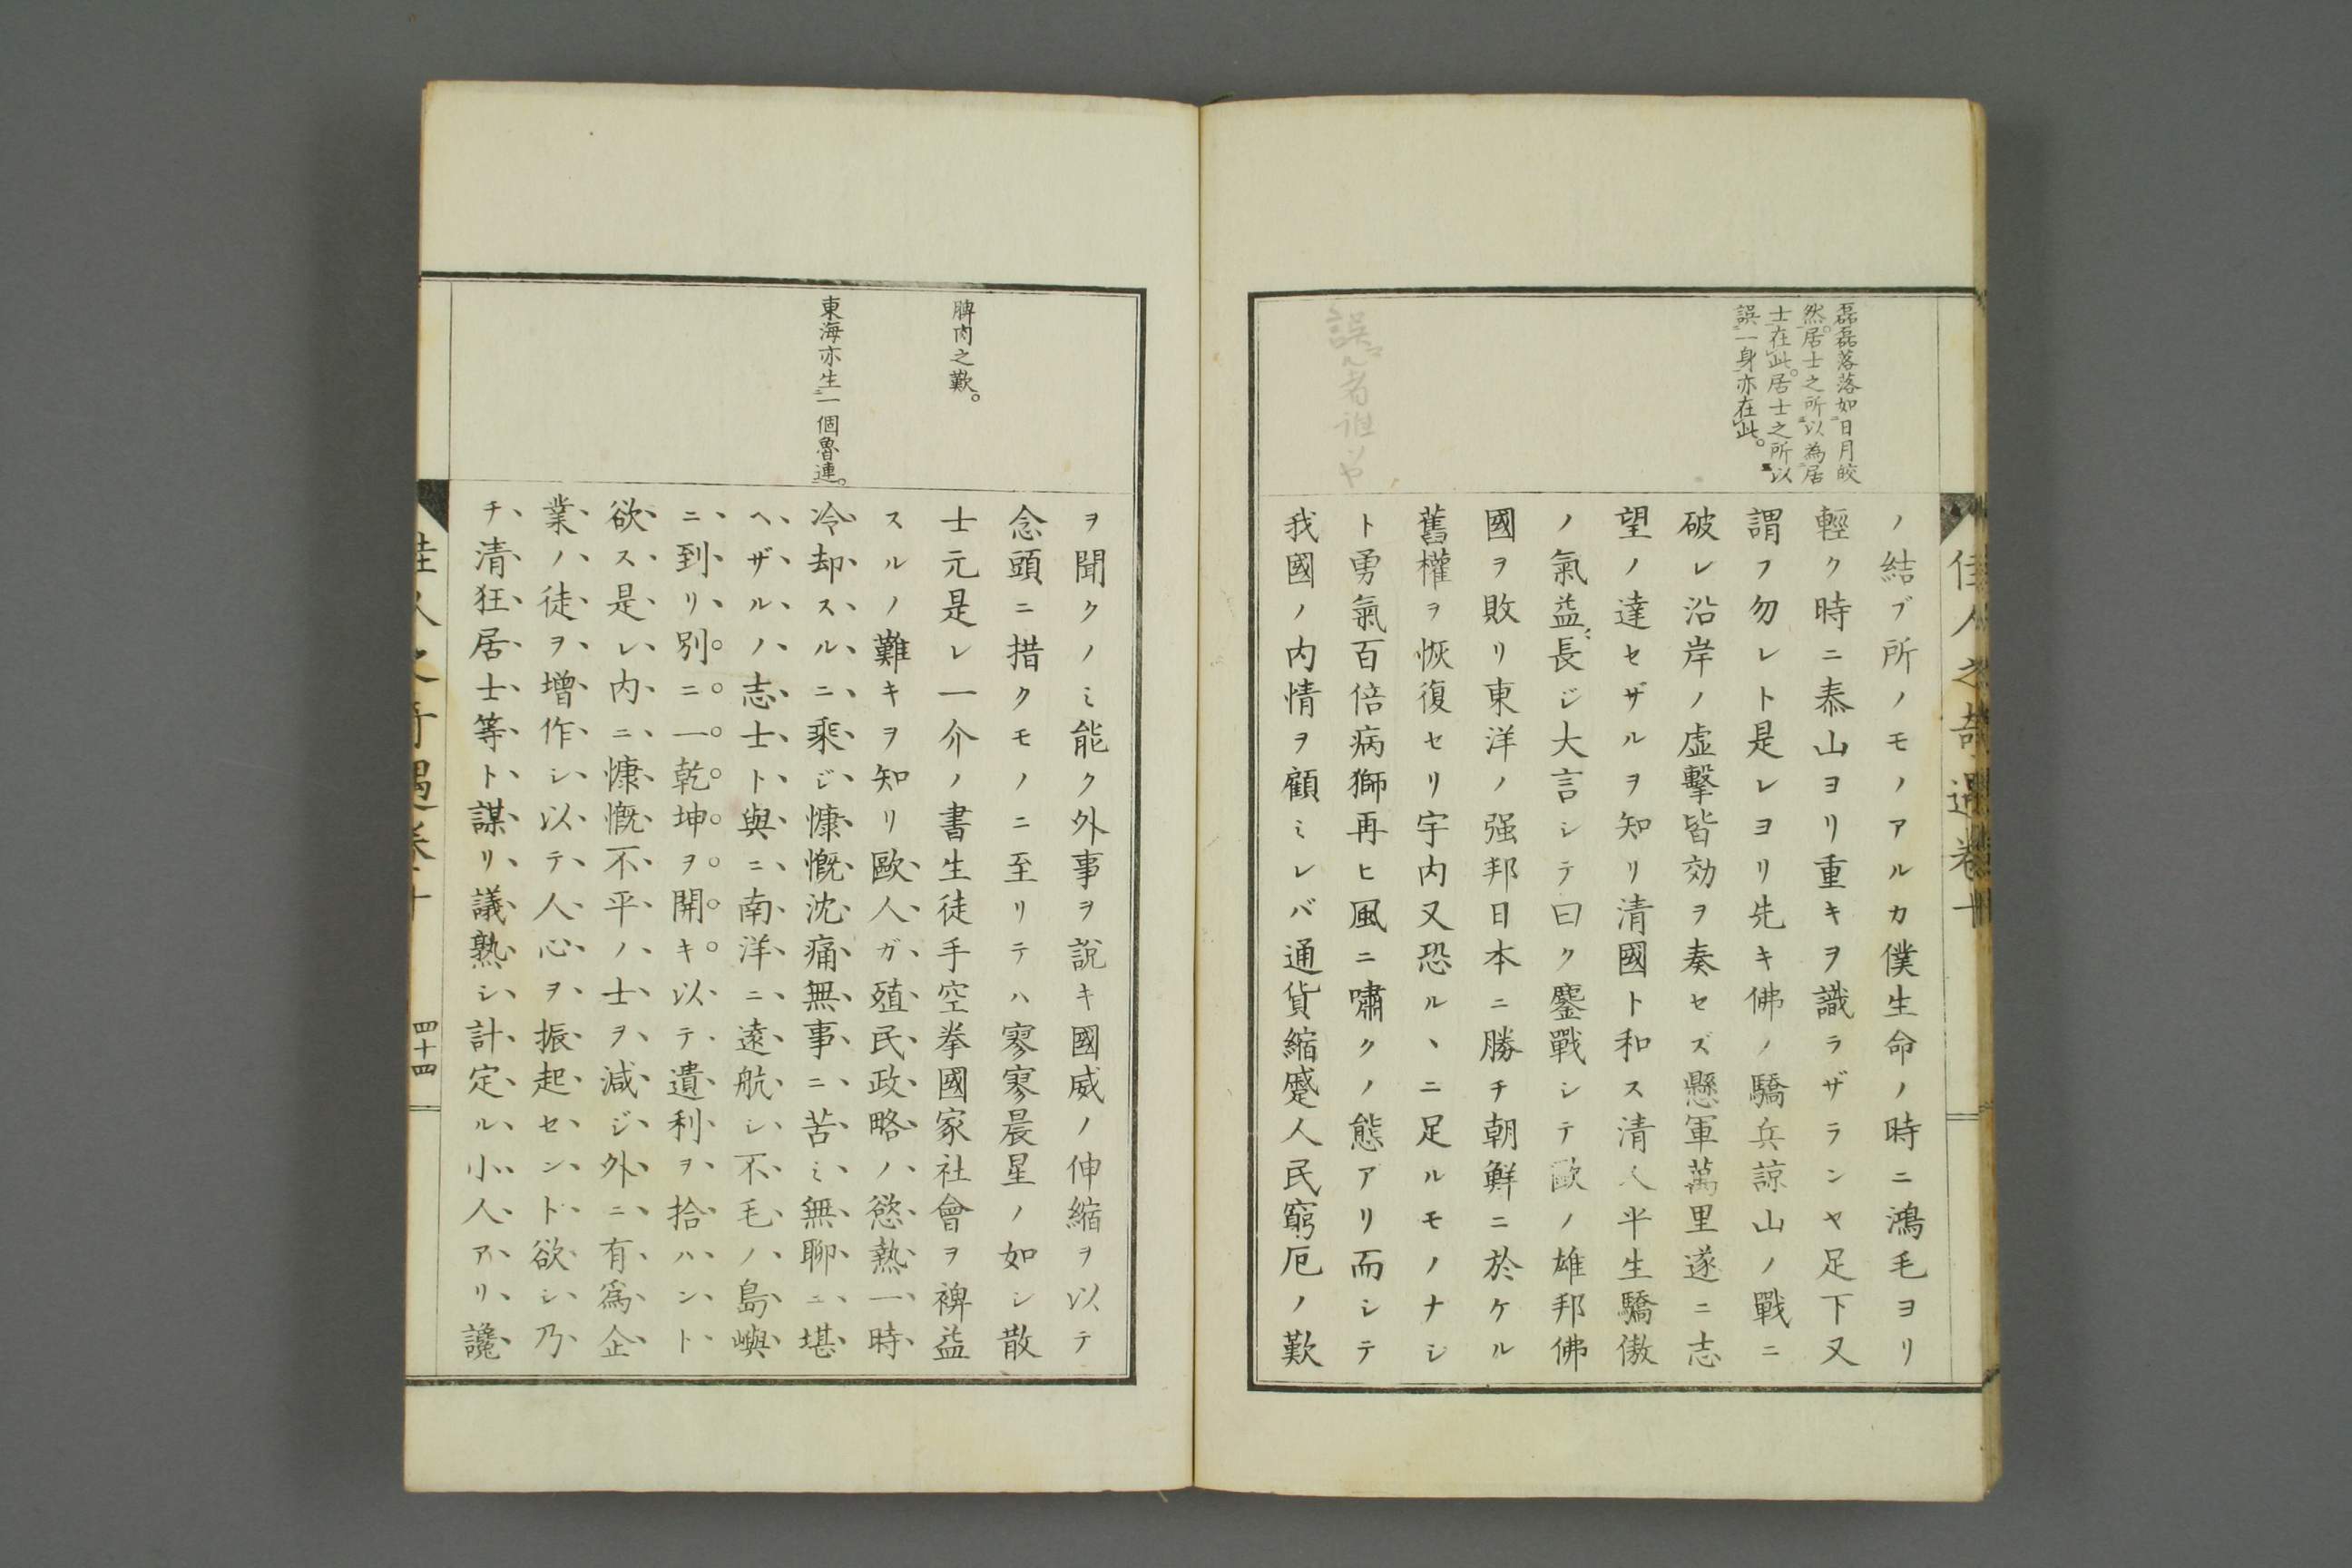 佳人之奇遇卷十
磊磊落落如日月皎
然。居士之所以為居
士在此。居士之所以
誤一身亦在此。
ノ結ブ所ノモノアルカ僕生命ノ時ニ鴻毛ヨリ
輕ク時ニ泰山ヨリ重キヲ識ラザランヤ足下又
謂フ勿レト是レヨリ先キ佛ノ驕兵諒山ノ戰ニ
破レ沿岸ノ虛擊皆効ヲ奏セズ懸軍萬里遂ニ志
望ノ達セザルヲ知リ清國ト和ス清人平生驕傲
ノ氣益〻長ジ大言シテ曰ク鏖戰シテ歐ノ雄邦佛
國ヲ敗リ東洋ノ强邦日本ニ勝チ朝鮮ニ於ケル
舊權ヲ恢復セリ宇内又恐ルヽニ足ルモノナシ
ト勇氣百倍病獅再ヒ風ニ嘯クノ態アリ而シテ
我國ノ内情ヲ顧ミレバ通貨縮蹙人民窮厄ノ歎
脾肉之歎。
東海亦生一個魯連。
ヲ聞クノミ能ク外事ヲ說キ國威ノ伸縮ヲ以テ
念頭ニ措クモノニ至リテハ寥寥晨星ノ如シ散
士元是レ一介ノ書生徒手空拳國家社會ヲ裨益
スルノ難キヲ知リ歐人ガ殖民政略ノ慾熱一時
冷却スルニ乘ジ慷慨沈痛無事ニ苦ミ無聊ニ堪
ヘザルノ志士ト與ニ南洋ニ遠航シ不毛ノ島嶼
ニ到リ別ニ一乾坤ヲ開キ以テ遺利ヲ拾ハント
欲ス是レ内ニ慷慨不平ノ士ヲ減ジ外ニ有爲企
業ノ徒ヲ增作シ以テ人心ヲ振起セント欲シ乃
チ清狂居士等ト謀リ議熟シ計定ル小人アリ讒
佳人之奇遇卷十
四十四